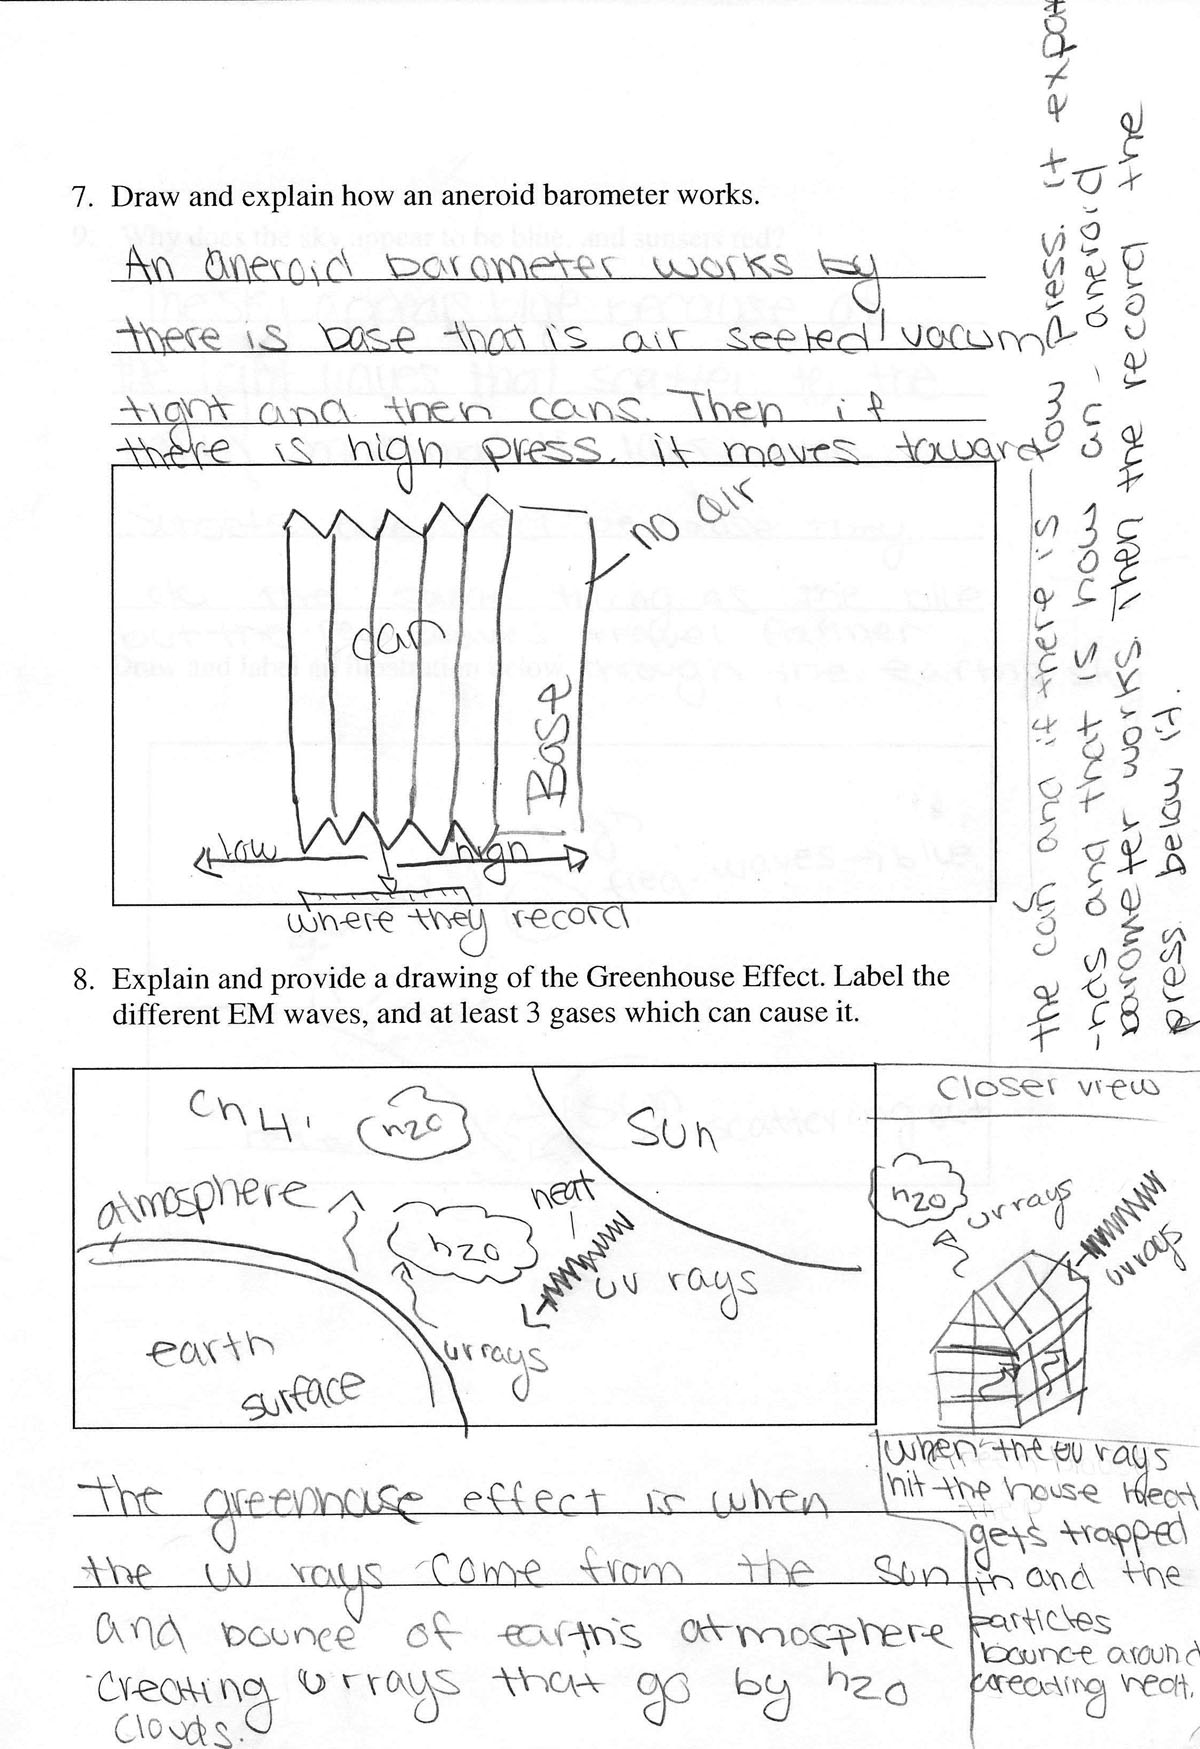 7. Draw and explain how an aneroid barometer works.
An aneroid barometer works by
there is base that is air seeled/vacum
tight and then cans. Then if
there is high press. it moves toward
the can and if there is low press. it expa
-nds and that is how an aneroid
barometer works. Then the record the
press. below it.
no air
can
Base
low
high
where they record
8. Explain and provide a drawing of the Greenhouse Effect. Label the
different EM waves, and at least 3 gases which can cause it.
closer view
Ch4.
h20
Sun
atmosphere
heat
h20
uv rays
earth
surface
urrays
h20
urrays
uvrays
when the uv rays
hit the house heat
gets trapped
in and the
particles
bounce around
coreating heat.
the greenhouse effect is when
the uv rays come from the sun
and bounce of earth's atmosphere
creating urrays that go by h20
clouds.